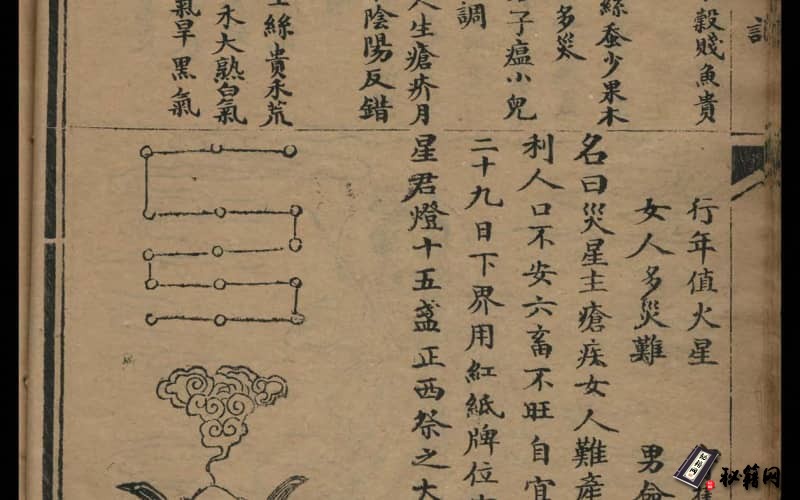 穀賤魚貴
絲蚕少果木
多災
子瘟小兒
調
人生瘡疥月
陰陽反錯
絲貴禾荒
禾大熟白氣
氣旱黑氣
行年值火星
女人多災難 男命
名曰災星主瘡疾女人難產
利人口不安六畜不旺自宜
二十九日下界用紅紙牌位
星君燈十五盞正西祭之大
秘籍网